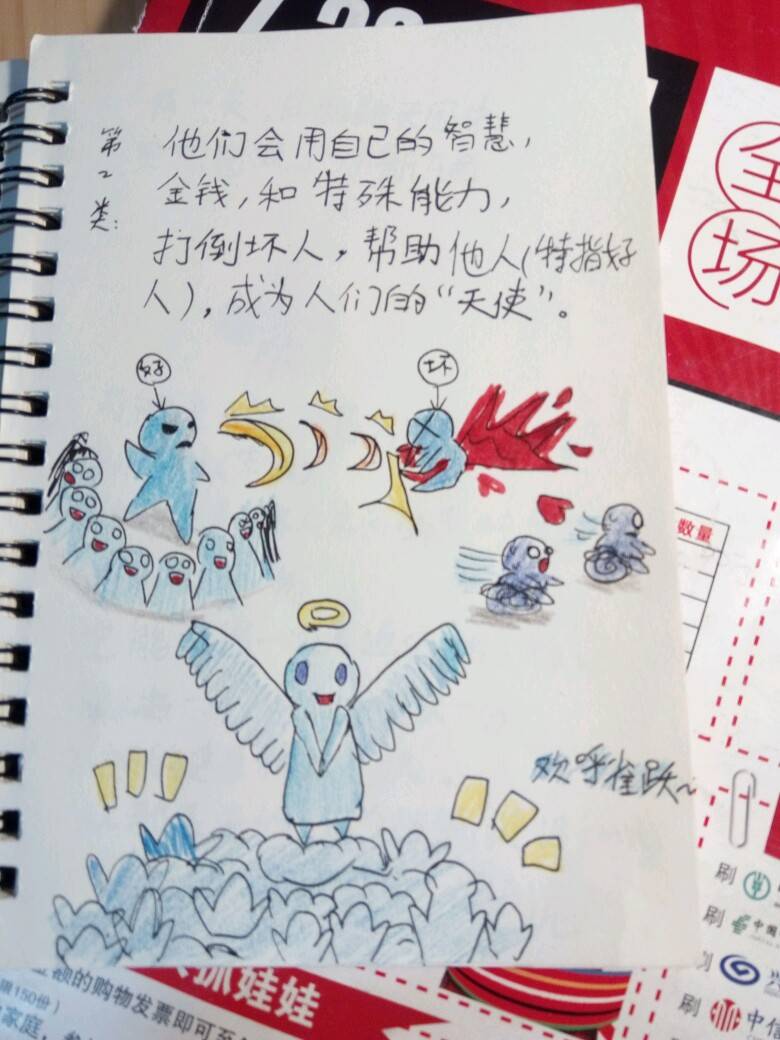 第2类:
他们会用自己的智慧,
金钱,和特殊能力,
打倒坏人,帮助他人(特指好
人),成为人们的“天使”。
好
坏
欢呼雀跃~
全
场
数量
刷
刷 中国
刷
刷 中信
抓娃娃
额的购物发票即可至
限150份)
家庭,